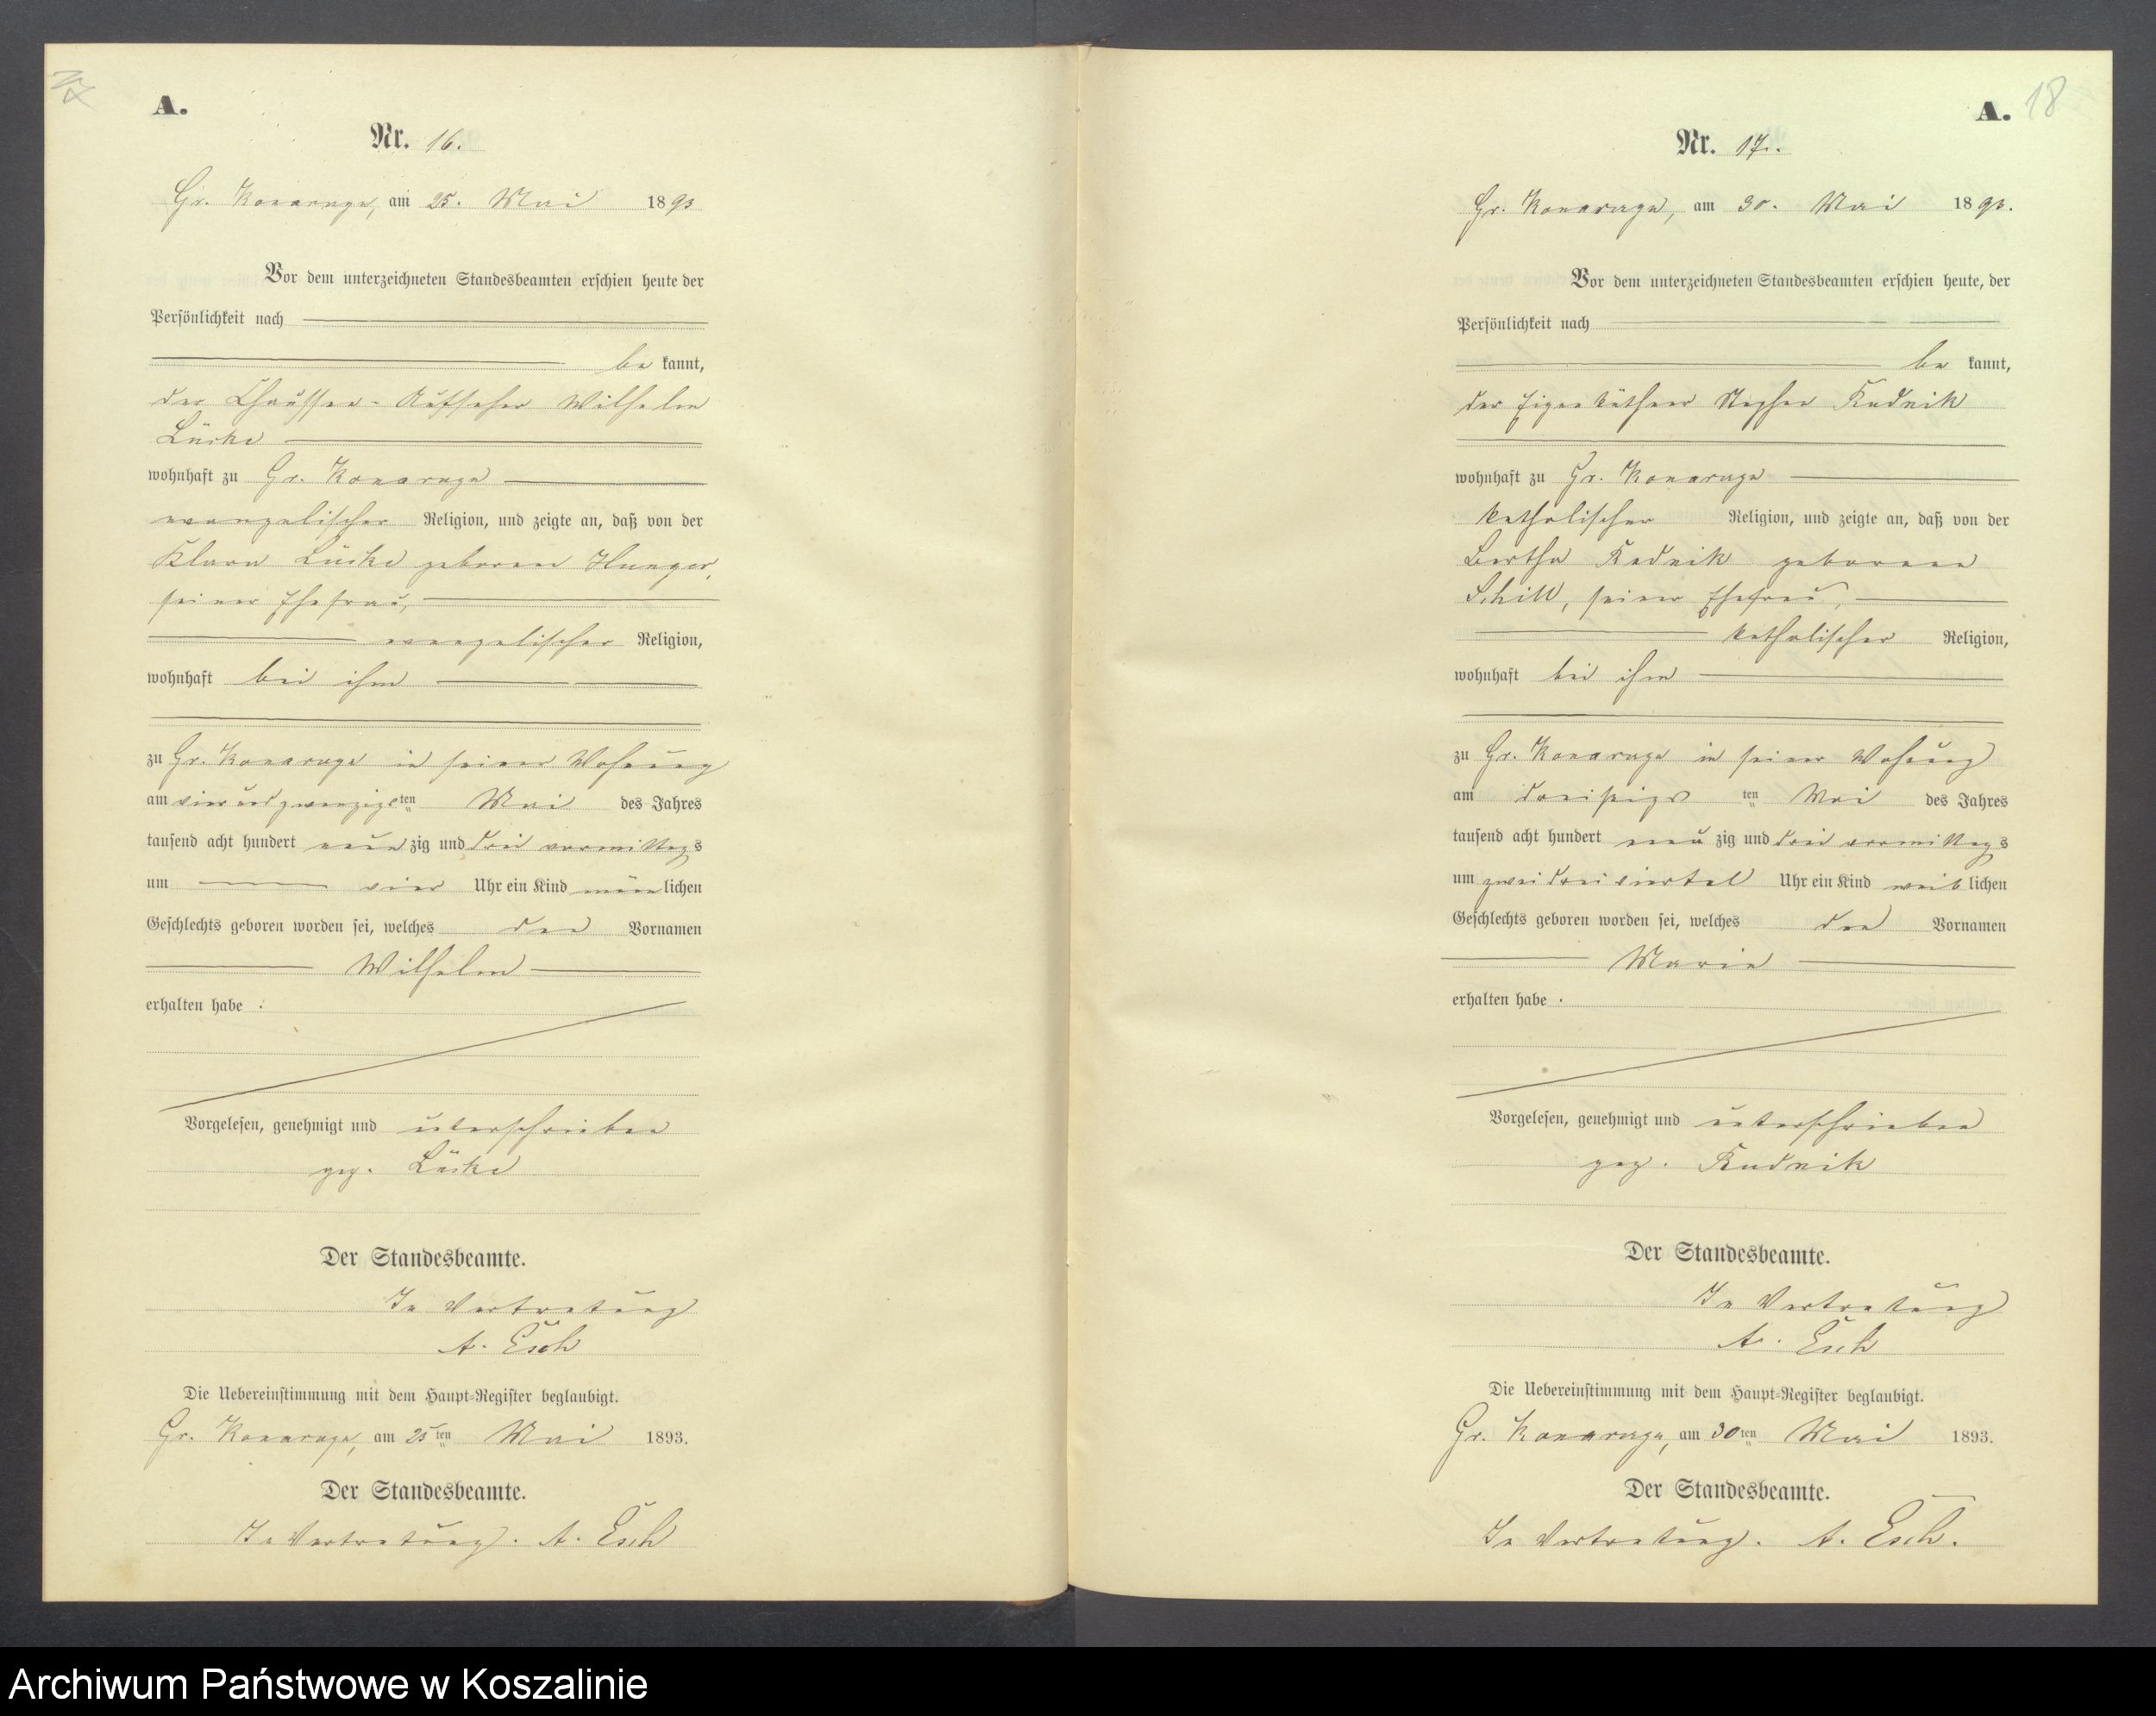 A.
Nr. 16.
Gr. Konarzyn, am 25. Mai 1893
Vor dem unterzeichneten Standesbeamten erschien heute der
Persönlichkeit nach
be kannt,
der Chaussee-Aufseher Wilhelm
Lücke
wohnhaft zu Gr. Konarzyn
evangelischer Religion, und zeigte an, daß von der
Klara Lücke geborene Hunger,
seiner Ehefrau,
evangelischer Religion,
wohnhaft bei ihm
zu Gr. Konarzyn in seiner Wohnung
am vier und zwanzigsten Mai des Jahres
tausend acht hundert neun zig und drei vormittags
um vier Uhr ein Kind männ lichen
Geschlechts geboren worden sei, welches den Vornamen
Wilhelm
erhalten habe .
Vorgelesen, genehmigt und unterschrieben
gez. Lücke
Der Standesbeamte.
In Vertretung
A. Esch
Die Uebereinstimmung mit dem Haupt-Register beglaubigt.
Gr. Konarzyn, am 25 ten Mai 1893.
Der Standesbeamte.
In Vertretung. A. Esch
A. 18
Nr. 17.
Gr. Konarzyn, am 30. Mai 1893.
Vor dem unterzeichneten Standesbeamten erschien heute, der
Persönlichkeit nach
be kannt,
der Eigenkäthner Stephan Rudnik
wohnhaft zu Gr. Konarzyn
katholischer Religion, und zeigte an, daß von der
Bertha Rudnik geborene
Schill, seiner Ehefrau,
katholischer Religion,
wohnhaft bei ihm
zu Gr. Konarzyn in seiner Wohnung
am dreißigs ten Mai des Jahres
tausend acht hundert neun zig und drei vormittags
um zwei dreiviertel Uhr ein Kind weib lichen
Geschlechts geboren worden sei, welches den Vornamen
Marie
erhalten habe .
Vorgelesen, genehmigt und unterschrieben
gez. Rudnik
Der Standesbeamte.
In Vertretung
A. Esch
Die Uebereinstimmung mit dem Haupt-Register beglaubigt.
Gr. Konarzyn, am 30 ten Mai 1893.
Der Standesbeamte.
In Vertretung. A. Esch.
Archiwum Państwowe w Koszalinie